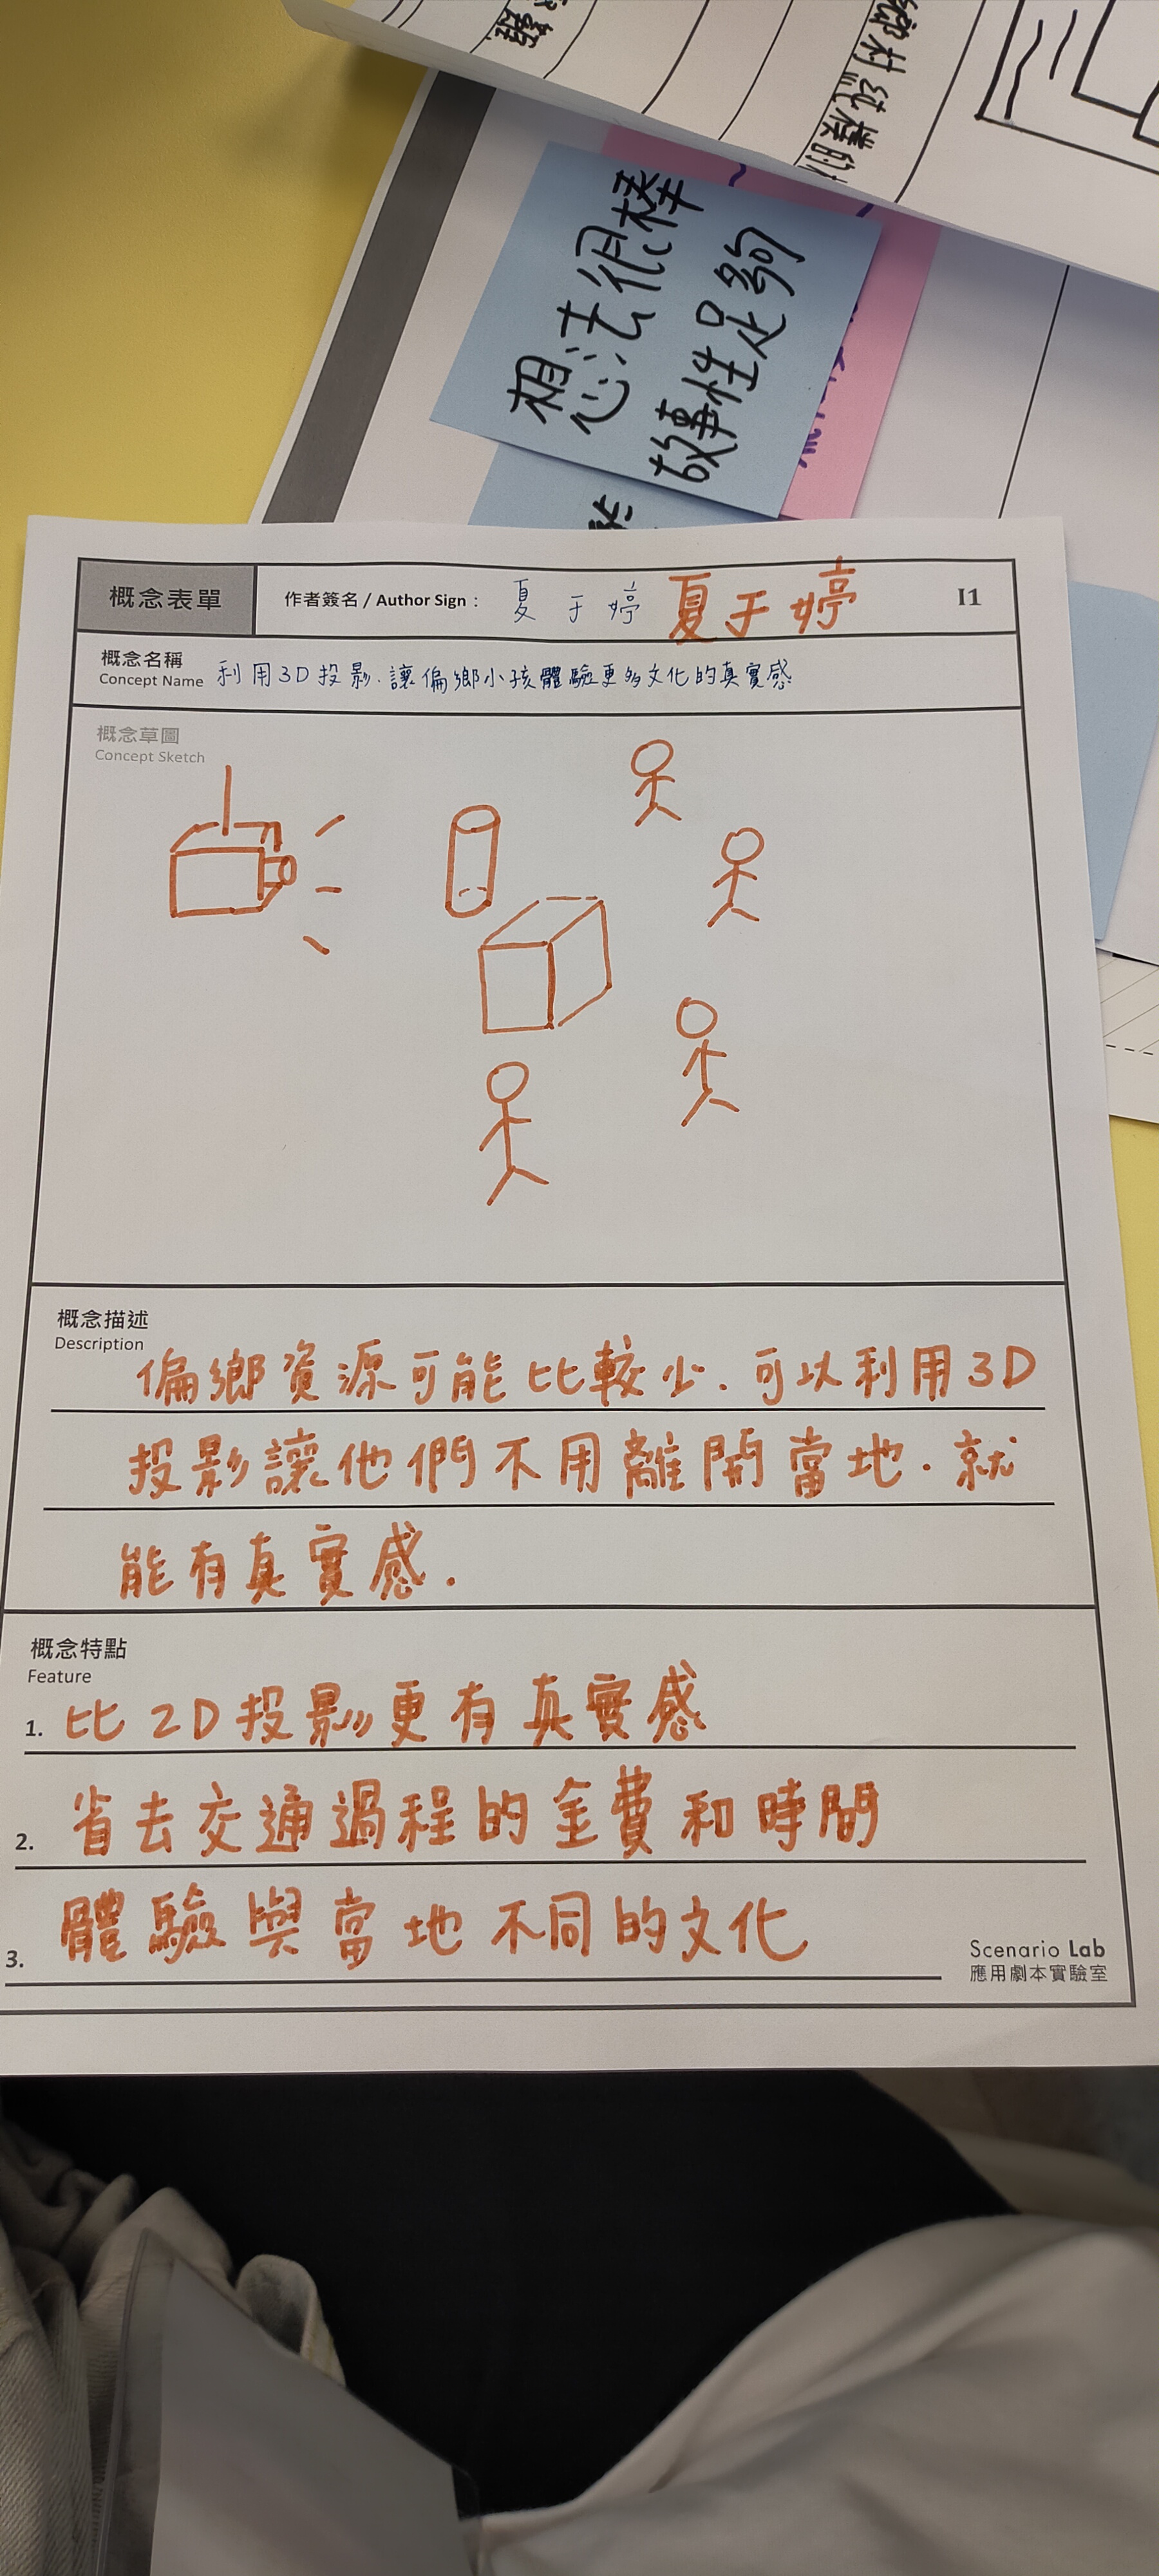 想法很棒
故事性足夠
概念表單
作者簽名 / Author Sign : 夏于婷 夏于婷
I1
概念名稱
Concept Name
利用3D投影.讓偏鄉小孩體驗更多文化的真實感
概念草圖
Concept Sketch
概念描述
Description
偏鄉資源可能比較少.可以利用3D
投影讓他們不用離開當地.就
能有真實感.
概念特點
Feature
1. 比2D投影更有真實感
2. 省去交通過程的金費和時間
3. 體驗與當地不同的文化
Scenario Lab
應用劇本實驗室